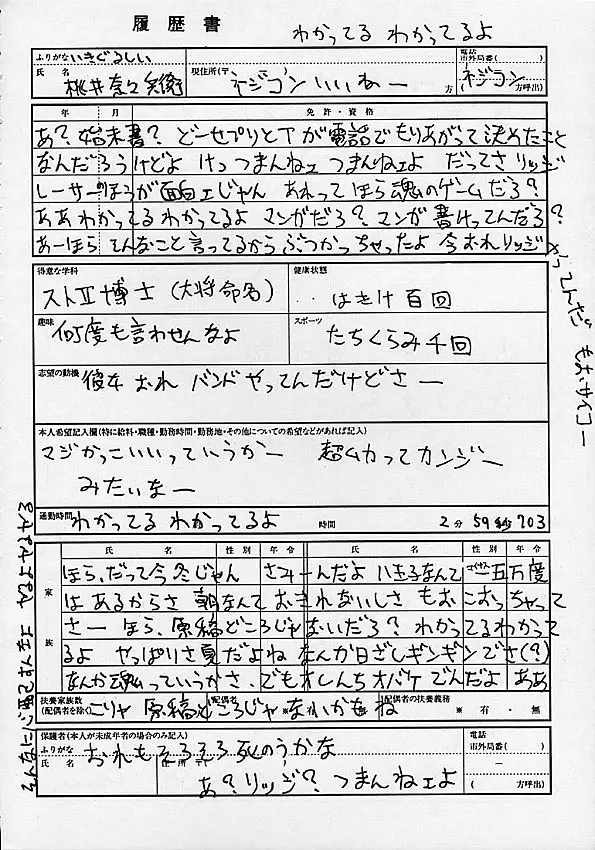 履歴書
わかってる わかってるよ
ふりがな いきぐるしい
氏 名 桃井奈々
現住所(〒 ) ネジコン いいねー 方
電話
市外局番( )
ネジコン
( 方呼出)
年 月 免許・資格
あ?始末書? どーせプリとTが電話でもりあがって決めたこと
なんだろうけどよ けっつまんねェ つまんねェよ だってさ リッジ
レーサーのほうが面白エじゃん あれってほら魂のゲームだろ?
ああわかってるわかってるよ マンガだろ?マンガ書けってんだろ?
あーほら てんなこと言ってるからぶつかっちゃったよ 今おれリッジ
やってんだ もおサイコー
得意な学科
ストⅡ博士(大将命名)
健康状態
‥はきけ百回
趣味
何度も言わせんなよ
スポーツ
たちくらみ千回
志望の動機
彼女 おれ バンドやってんだけどさー
本人希望記入欄(特に給料・職種・勤務時間・勤務地・その他についての希望などがあれば記入)
マジかっこいいっていうかー 超ムカってカンジー
みたいなー
通勤時間 わかってる わかってるよ 時間 2分 59秒703
氏 名 性別 年令 氏 名 性別 年令
家族
ほら、だって今冬じゃん さみーんだよ 八王子なんて 一五万度
はあるからさ 朝なんておきれないしさ もおこおっちゃって
さー ほら、原稿どころじゃないだろ?わかってるわかって
るよ やっぱりさ夏だよね なんか日ざしギンギンでさ(?)
なんか魂っていうかさ、でもオレんちオバケでんだよ ああ
扶養家族数
(配偶者を除く)
配偶者
配偶者の扶養義務
※ ※ 有・無
こりゃ 原稿どころじゃないかもね
保護者(本人が未成年者の場合のみ記入)
ふりがな
氏 名
住 所 (〒
おれもそろそろ死のうかな
あ?リッジ? つまんねエよ
電話
市外局番( )
ー
( 方呼出)